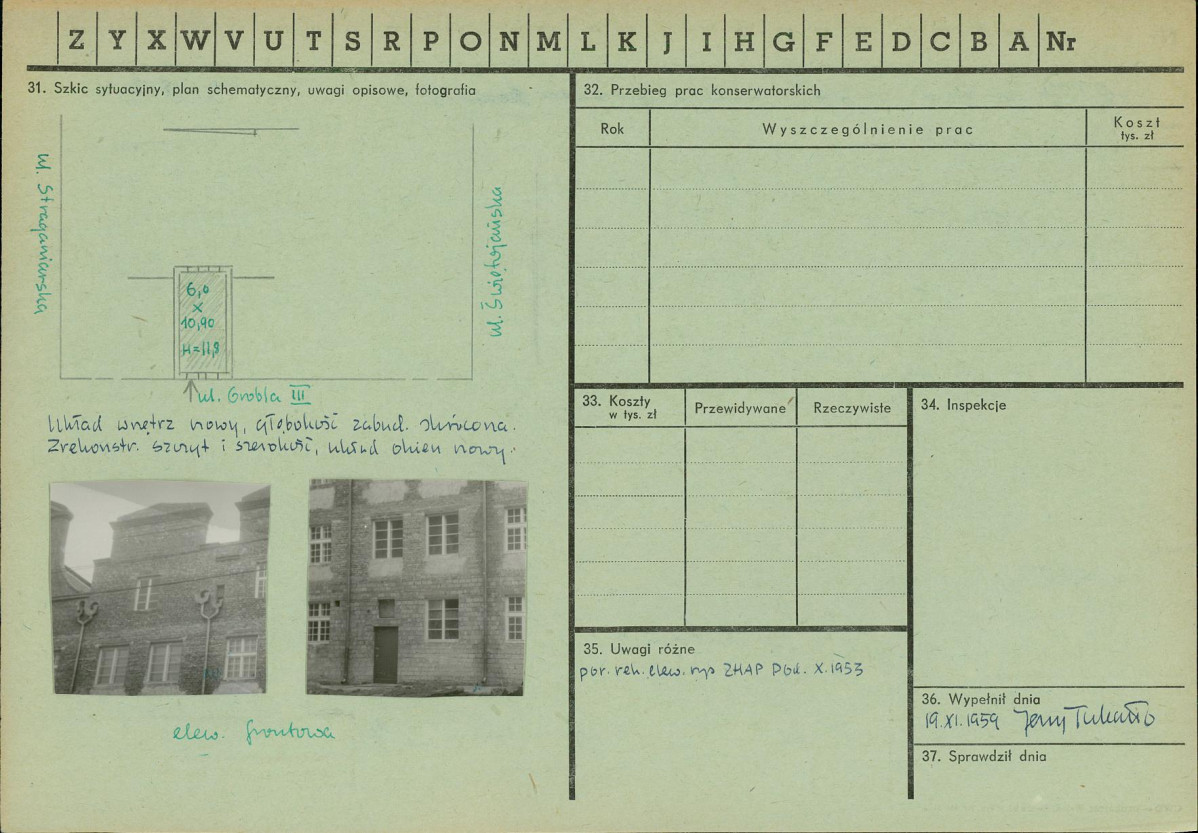 Z Y X W V U T S R P O N M L K J I H G F E D C B A Nr
31. Szkic sytuacyjny, plan schematyczny, uwagi opisowe, fotografia
ul. Straganiarska
ul. Świętojańska
6,0
x
10,90
H=11,8
ul. Grobla III
Układ wnętrz nowy, głębokość zabud. skrócona.
Zrekonstr. szczyt i szerokość, układ okien nowy.
elew. frontowa
32. Przebieg prac konserwatorskich
Rok
Wyszczególnienie prac
Koszt
tys. zł
33. Koszty
w tys. zł
Przewidywane
Rzeczywiste
34. Inspekcje
35. Uwagi różne
por. rek. elew. rys ZHAP PGd. X.1953
36. Wypełnił dnia
19.XI.1959 Jerzy
37. Sprawdził dnia